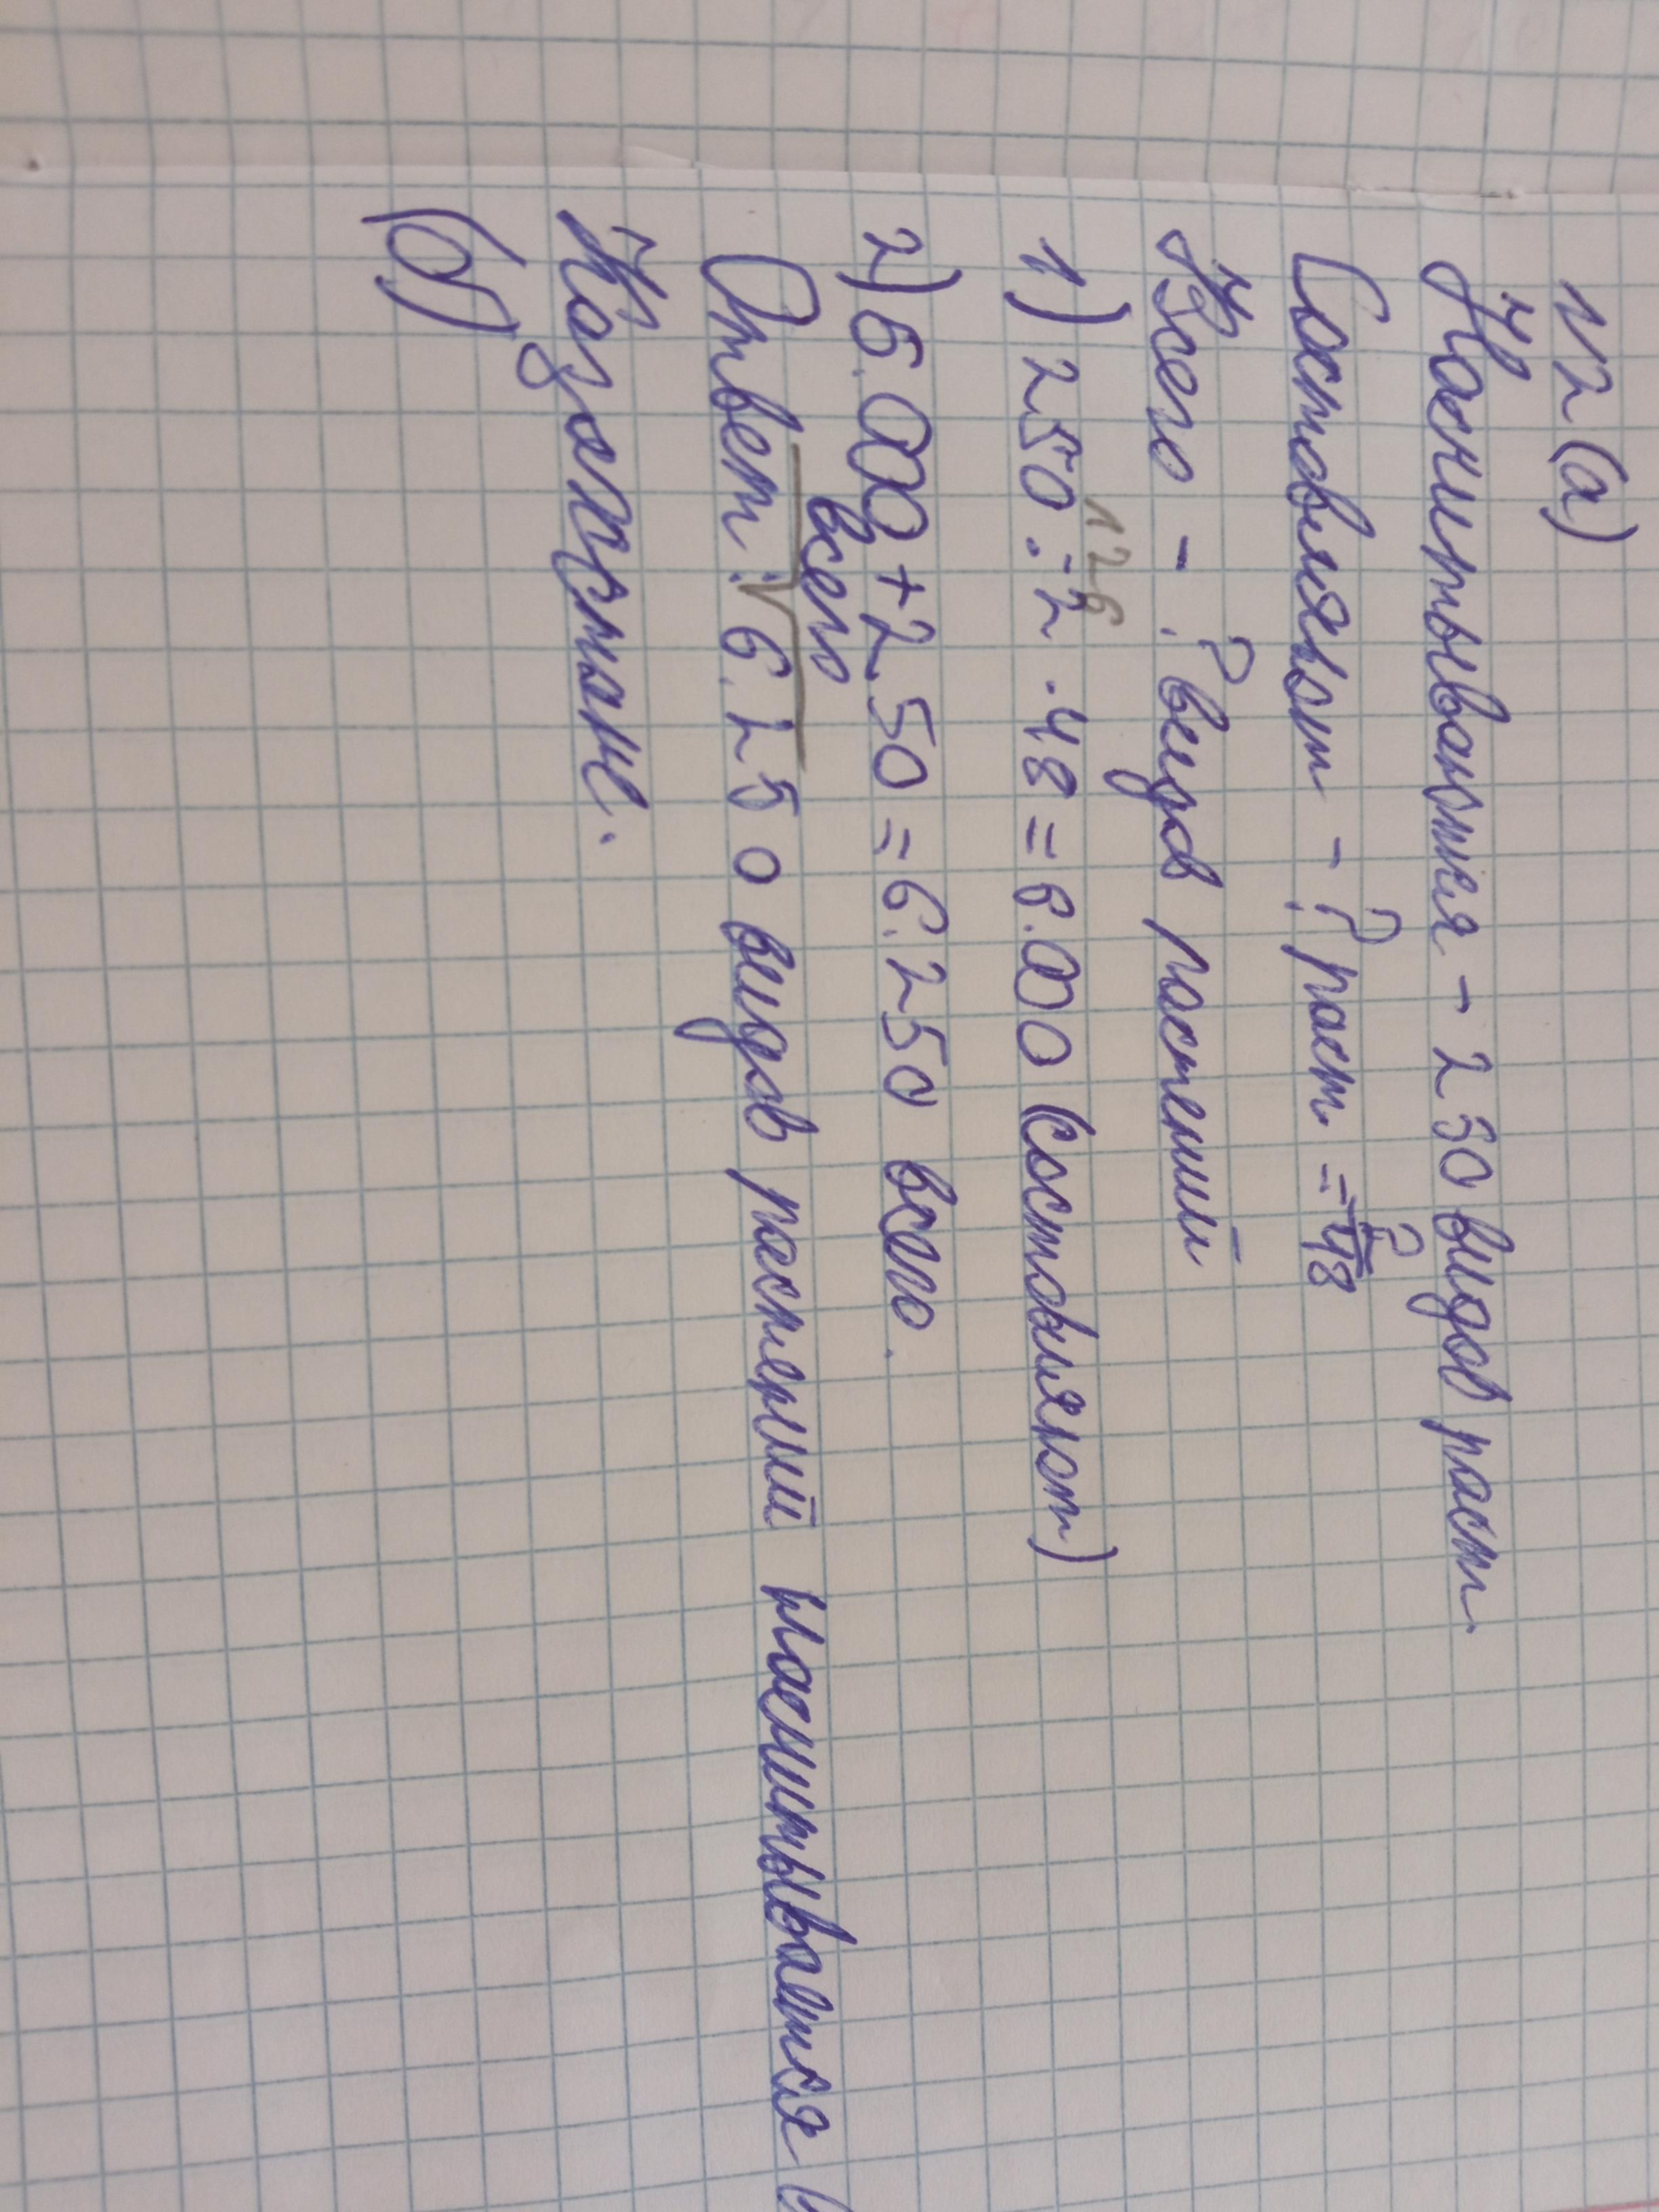 №2(а)
Насчитываются - 250 видов раст
Составляют - ? раст. = 2/48
Всего - ? видов растений
126
1) 250 : 2 · 48 = 6.000 (составляют)
2) 6.000 + 250 = 6.250 всего.
всего
Ответ: 6.250 видов растений насчитывается
Казахстане.
(б)